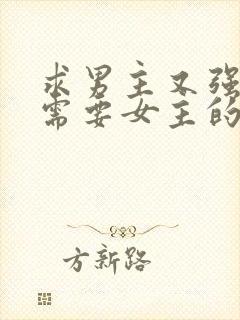 求男主又强
需要女主的
方新路